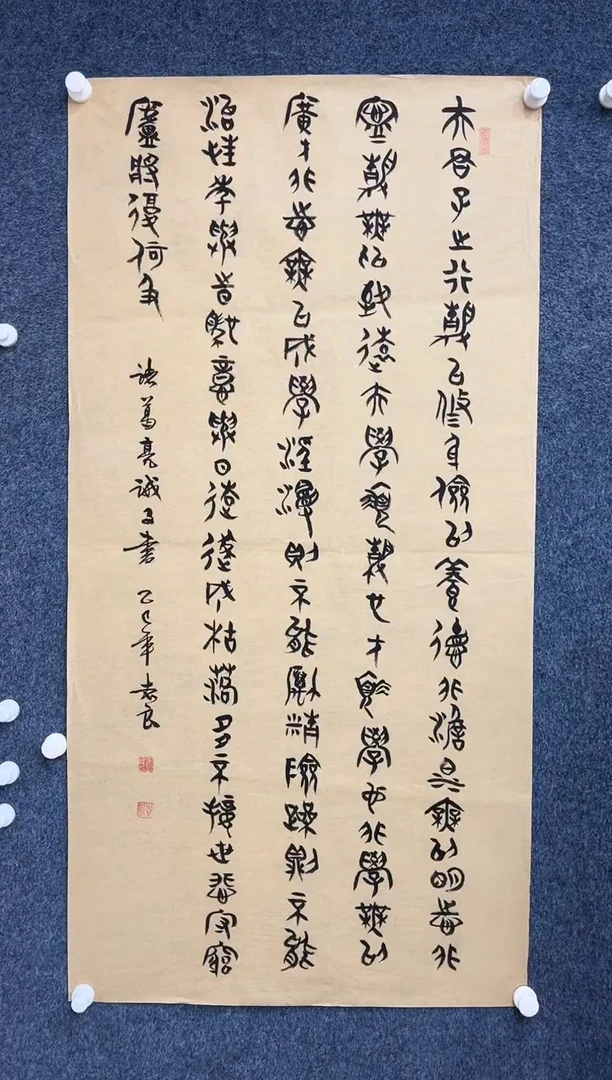 夫君子之行靜以修身儉以養德非澹泊無以明志非
寧靜無以致遠夫學須靜也才須學也非學無以
廣才非志無以成學淫慢則不能勵精險躁則不能
治性年與時馳意與日去遂成枯落多不接世悲守窮
廬將復何及
諸葛亮誡子書 乙巳年